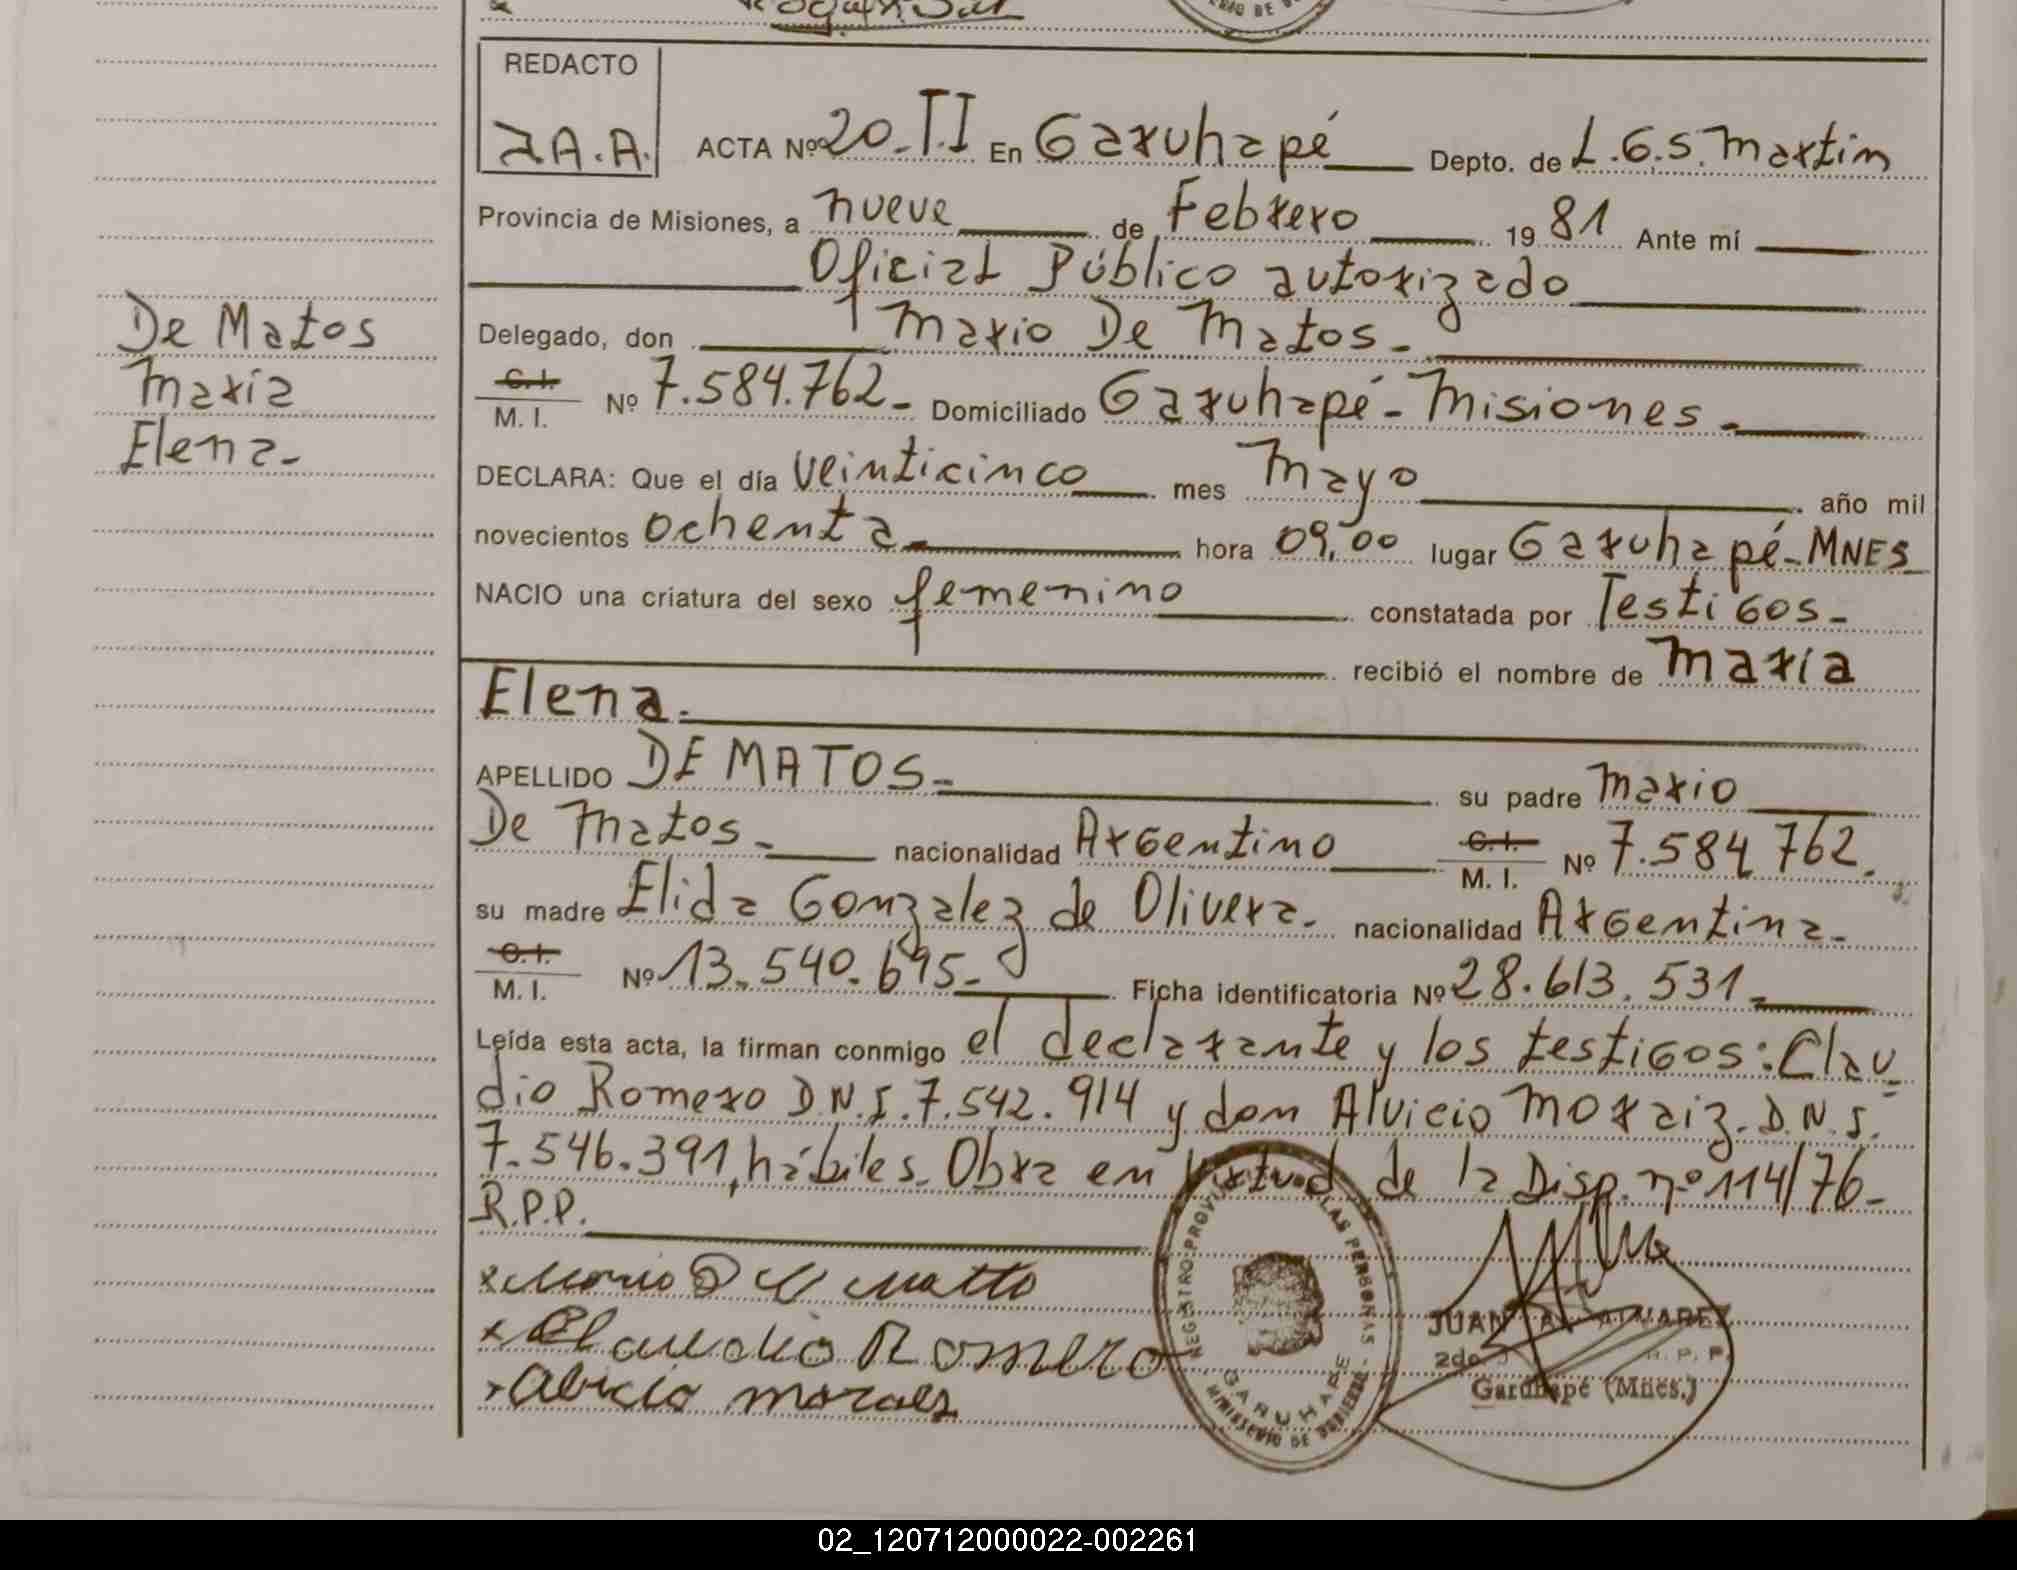 REDACTO
J.A.A. ACTA Nº 20-T.I En Garuhapé Depto. de L.G.S. Martin
Provincia de Misiones, a nueve de Febrero 1981 Ante mí
Oficial Público autorizado
Delegado, don Mario De Matos-
C.I.
M. I. Nº 7.584.762- Domiciliado Garuhapé-Misiones-
De Matos
Maria
Elena-
DECLARA: Que el día veinticinco mes Mayo año mil
novecientos ochenta- hora 09,00 lugar Garuhapé-MNES
NACIO una criatura del sexo femenino constatada por Testigos-
recibió el nombre de María
Elena-
APELLIDO DE MATOS- su padre Mario
De Matos- nacionalidad Argentino C.I. M. I. Nº 7.584.762.
su madre Elida Gonzalez de Olivera- nacionalidad Argentina-
C.I.
M. I. Nº 13.540.695- Ficha identificatoria Nº 28.613.531-
Leída esta acta, la firman conmigo el declarante y los testigos: Clau
dio Romero D.N.I. 7.542.914 y don Alvicio Moraiz. D.N.I.
7.546.391, hábiles- Obra en virtud de la Disp. nº 114/76-
R.P.P.
x Mario D
x Claudio Romero
x Abicio moraes
REGISTRO PROVINCIAL DE LAS PERSONAS
GARUHAPE
MINISTERIO DE GOBIERNO
JUAN A. ALVAREZ
2do. R. P. P.
Garuhapé (Mnes.)
02_120712000022-002261